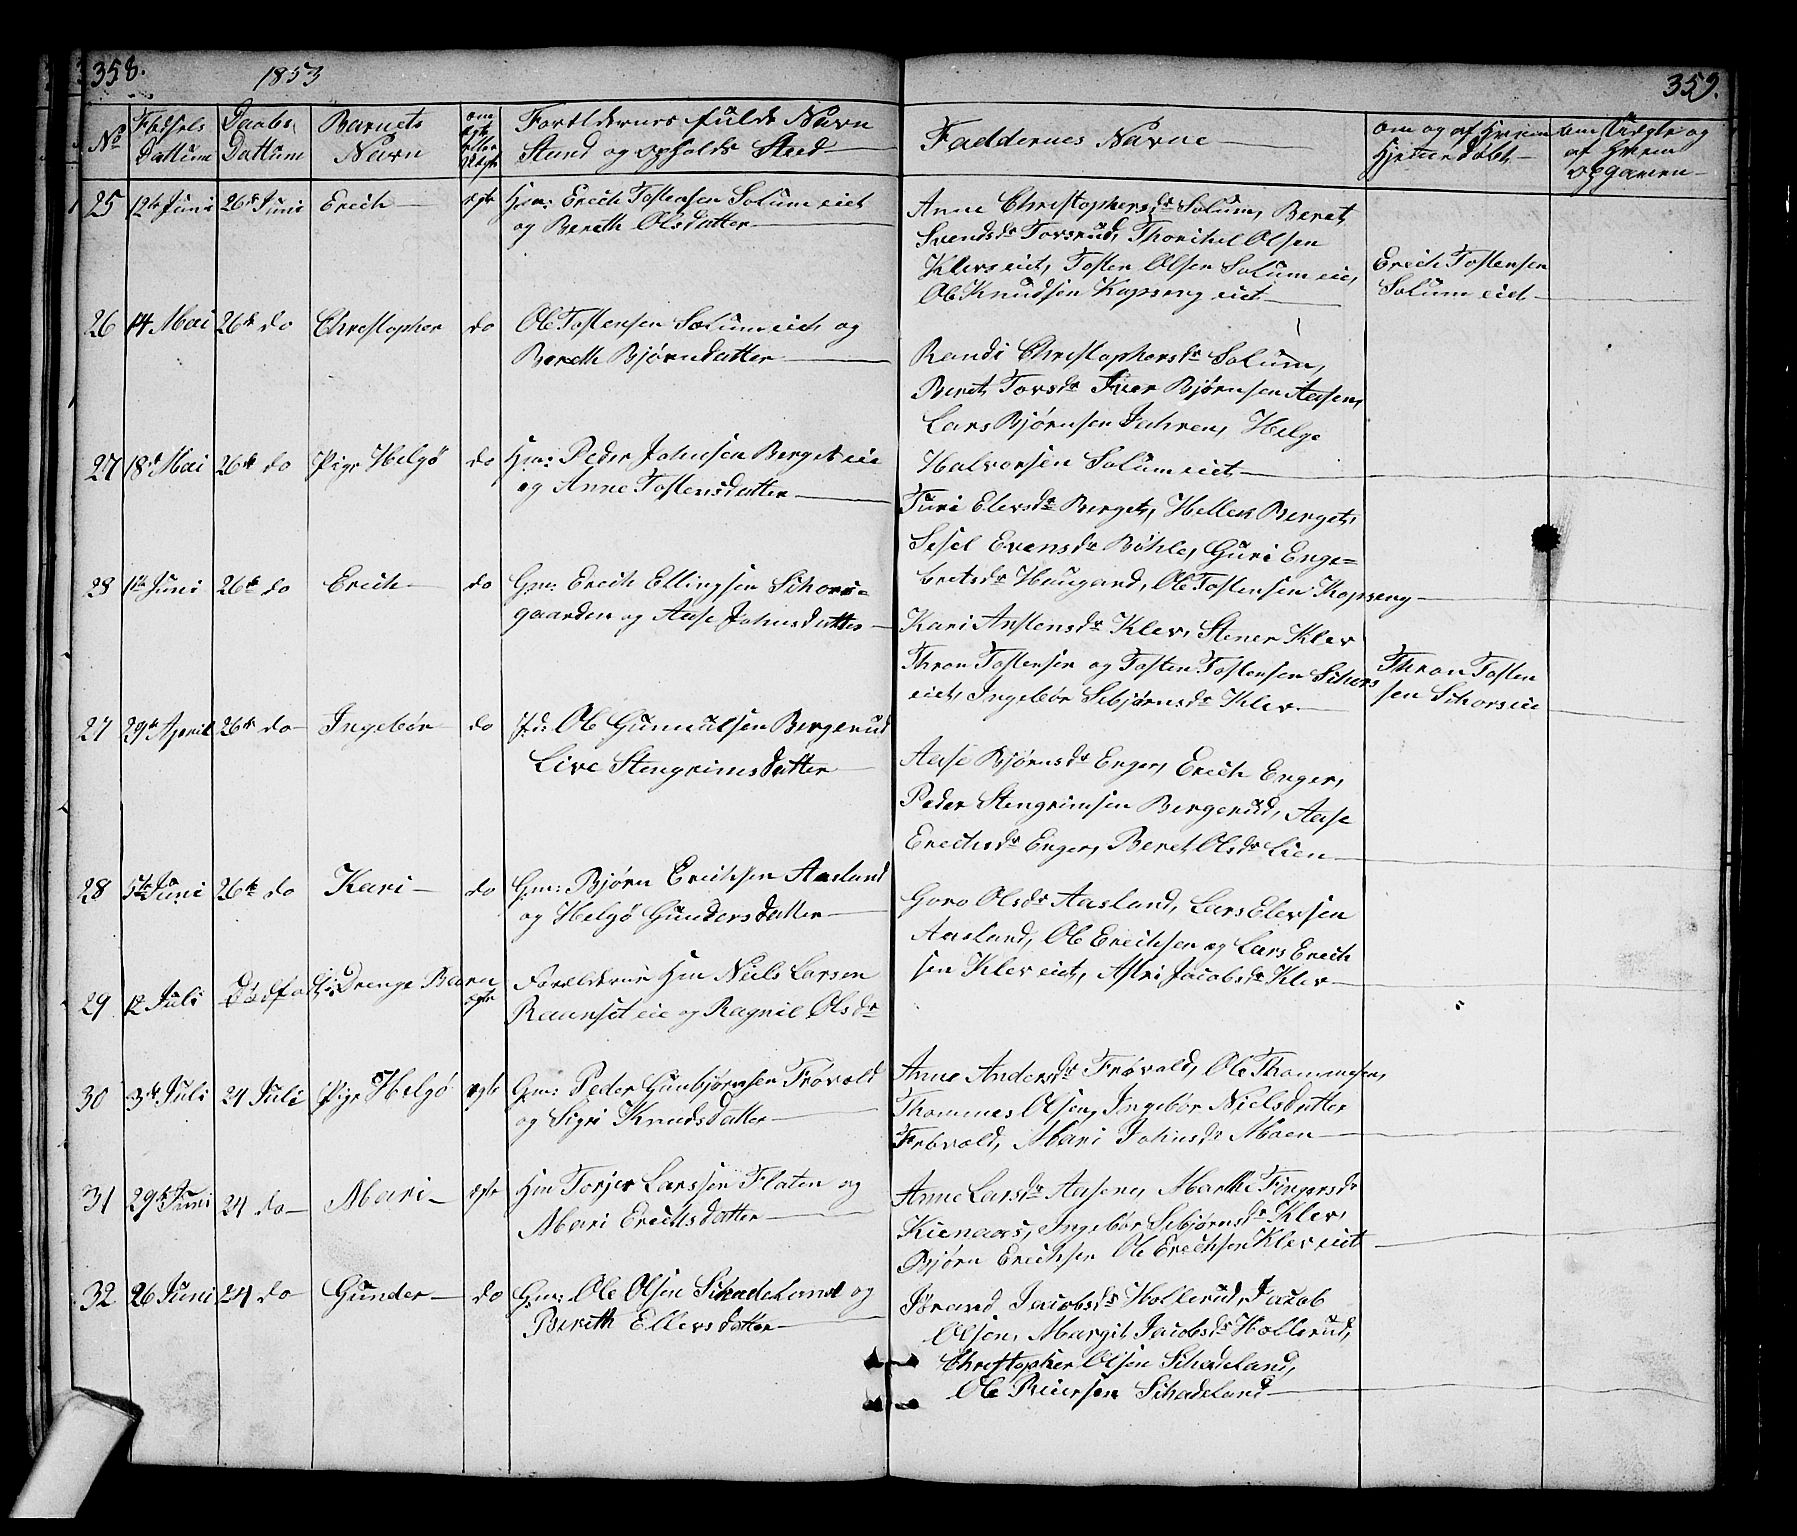 358. 1853 359.
No Fødsels Dattum Daabs Dattum Barnets Navn om egte eller Uegte Foreldernes fulde Navn Stand og opholds Sted Faddernes Navne om og af Hvem Hjemmedøbt om Uegte og af Hvem opgaven
25 12te Juni 26de Juni Erich egte Hm: Erich Tostensen Solum eiet
og Bereth Olsdatter
Anne Christophersdr Solum, Beret
Svendsdr Torsrud, Thorchel Olsen
Klevseiet, Tosten Olsen Solum eie,
Ole Knudsen Kopseng eiet
Erich Tostensen
Solum eiet
26 14 Mai 26de do Christopher do Ole Tostensen Solum eiet og
Bereth Bjørnsdatter
Randi Christophersdr Solum,
Beret Torsdr Iver Bjørnsen Aasen,
Lars Bjørnsen Jahren, Helge
Halvorsen Solum eiet
27 18de Mai 26de do Pige Helgø do Hm: Peder Johnsen Berget eie
og Anne Tostensdatter
Turi Elevsdr Berget, Hellek Berget,
Sisel Evensdr Bøhle, Guri Enge=
bretsdr Haugard, Ole Tostensen Kopseng
28 1te Juni 26de do Erich do Gm: Erich Ellingsen Schors=
gaarden og Aase Johnsdatter
Kari Anstensdr Klev, Stener Klev
Thron Tostensen og Tosten Tostensen Schors
eiet, Ingebør Sebjørnsdr Klev
Thron Tosten
sen Schorseie
27 29de April 26de do Ingebør do Pd: Ole Gunnulsen Bergerud
Live Stengrimsdatter
Aase Bjørnsdr Enger, Erich Enger,
Peder Stengrimsen Bergerud, Aase
Erichsdr Enger, Beret Olsdr Lien
28 5te Juni 26de do Kari do Gm: Bjørn Erichsen Aasland
og Helgø Gundersdatter
Goro Olsdr Aasland, Lars Elevsen
Aasland, Ole Erichsen og Lars Erich
sen Klev eiet, Astri Jacobsdr Klev
29 12 Juli Dødfødt: Drenge Barn egte Forældrene Hm Niels Larsen
Raunset eie og Ragnil Olsdr
30 3de Juli 24 Juli Pige Helgø egte Gm: Peder Gunbjørnsen Frøvold
og Sigri Knudsdatter
Anne Andersdr Frøvold, Ole Thommesen,
Thommes Olsen, Ingebør Nielsdatter
Frøvold, Mari Johnsdr Moen
31 29de Juni 24 do Mari egte Hm Torjer Larssen Flaten og
Mari Erichsdatter
Anne Larsdr Aasene, Marthe Fingersdr
Kienaas, Ingebør Sebjørnsdr Klev,
Bjørn Erichsen Ole Erichsen Klev eiet
32 26 Juni 24 do Gunder do Gm: Ole Olsen Schadeland og
Bereth Ellevsdatter
Jørand Jacobsdr Hollerud, Jacob
Olsen, Margit Jacobsdr Hollerud,
Christopher Olsen Schadeland,
Ole Reiersen Schadeland